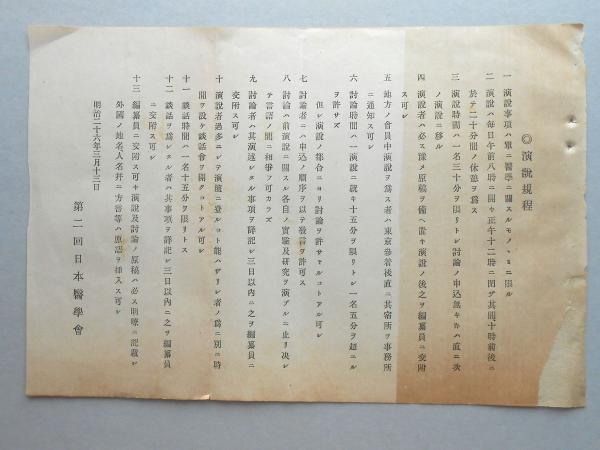 ◎演說規程
一 演說事項ハ單ニ醫學ニ關スルモノヽミニ限ル
二 演說ハ毎日午前八時ニ開キ正午十二時ニ閉ヂ其間十時前後ニ
於テ二十分間ノ休憩ヲ爲ス
三 演說時間ハ一名三十分ヲ限リトシ討論ノ申込無キ片ハ直ニ次
ノ演說ニ移ル
四 演說者ハ必ス豫メ原稿ヲ備ヘ置キ演說ノ後之ヲ編纂員ニ交附
ス可シ
五 地方ノ會員中演說ヲ爲ス者ハ東京參著後直ニ其宿所ヲ事務所
ニ通知ス可シ
六 討論時間ハ一演說ニ就キ十五分ヲ限リトシ一名五分ヲ超ユル
ヲ許サズ
但シ演說ノ都合ニヨリ討論ヲ許サヾルコトアル可シ
七 討論者ニハ申込ノ順序ヲ以テ發言ヲ許可ス
八 討論ハ前演說ニ關スル各自ノ實驗及硏究ヲ演ブルニ止リ决シ
テ言語ノ間ニ和爭フ可カラズ
九 討論者ハ其演述シタル事項ヲ詳記シ三日以內ニ之ヲ編纂員ニ
交附ス可シ
十 演說者過多ニシテ演壇ニ登ルコト能ハザリシ者ノ爲ニ別ニ時
間ヲ設ケ談話會ヲ開クコトアル可シ
十一 談話時間ハ一名十五分ヲ限リトス
十二 談話ヲ爲シタル者ハ其事項ヲ詳記シ三日以內ニ之ヲ編纂員
ニ交附ス可シ
十三 編纂員ニ交附ス可キ演說及討論ノ原稿ハ必ス明瞭ニ記載シ
外國ノ地名人名幷ニ方言等ハ原語ヲ挿入ス可シ
明治二十六年三月十三日
第二回日本醫學會